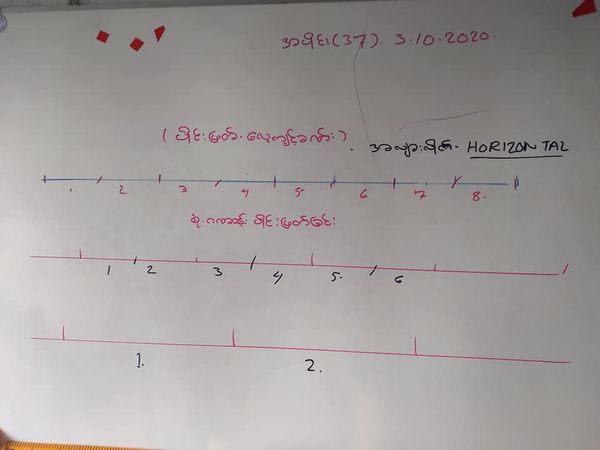 အပိုင်း(37). 3.10.2020.
(ပိုင်းဖြတ်. လေ့ကျင့်ခဏ်း).
အလျားလိုက်. HORIZONTAL
1 2 3 4 5 6 7 8.
ပိုင်းဖြတ်ခြင်း
1 2 3 4 5. 6
1. 2.